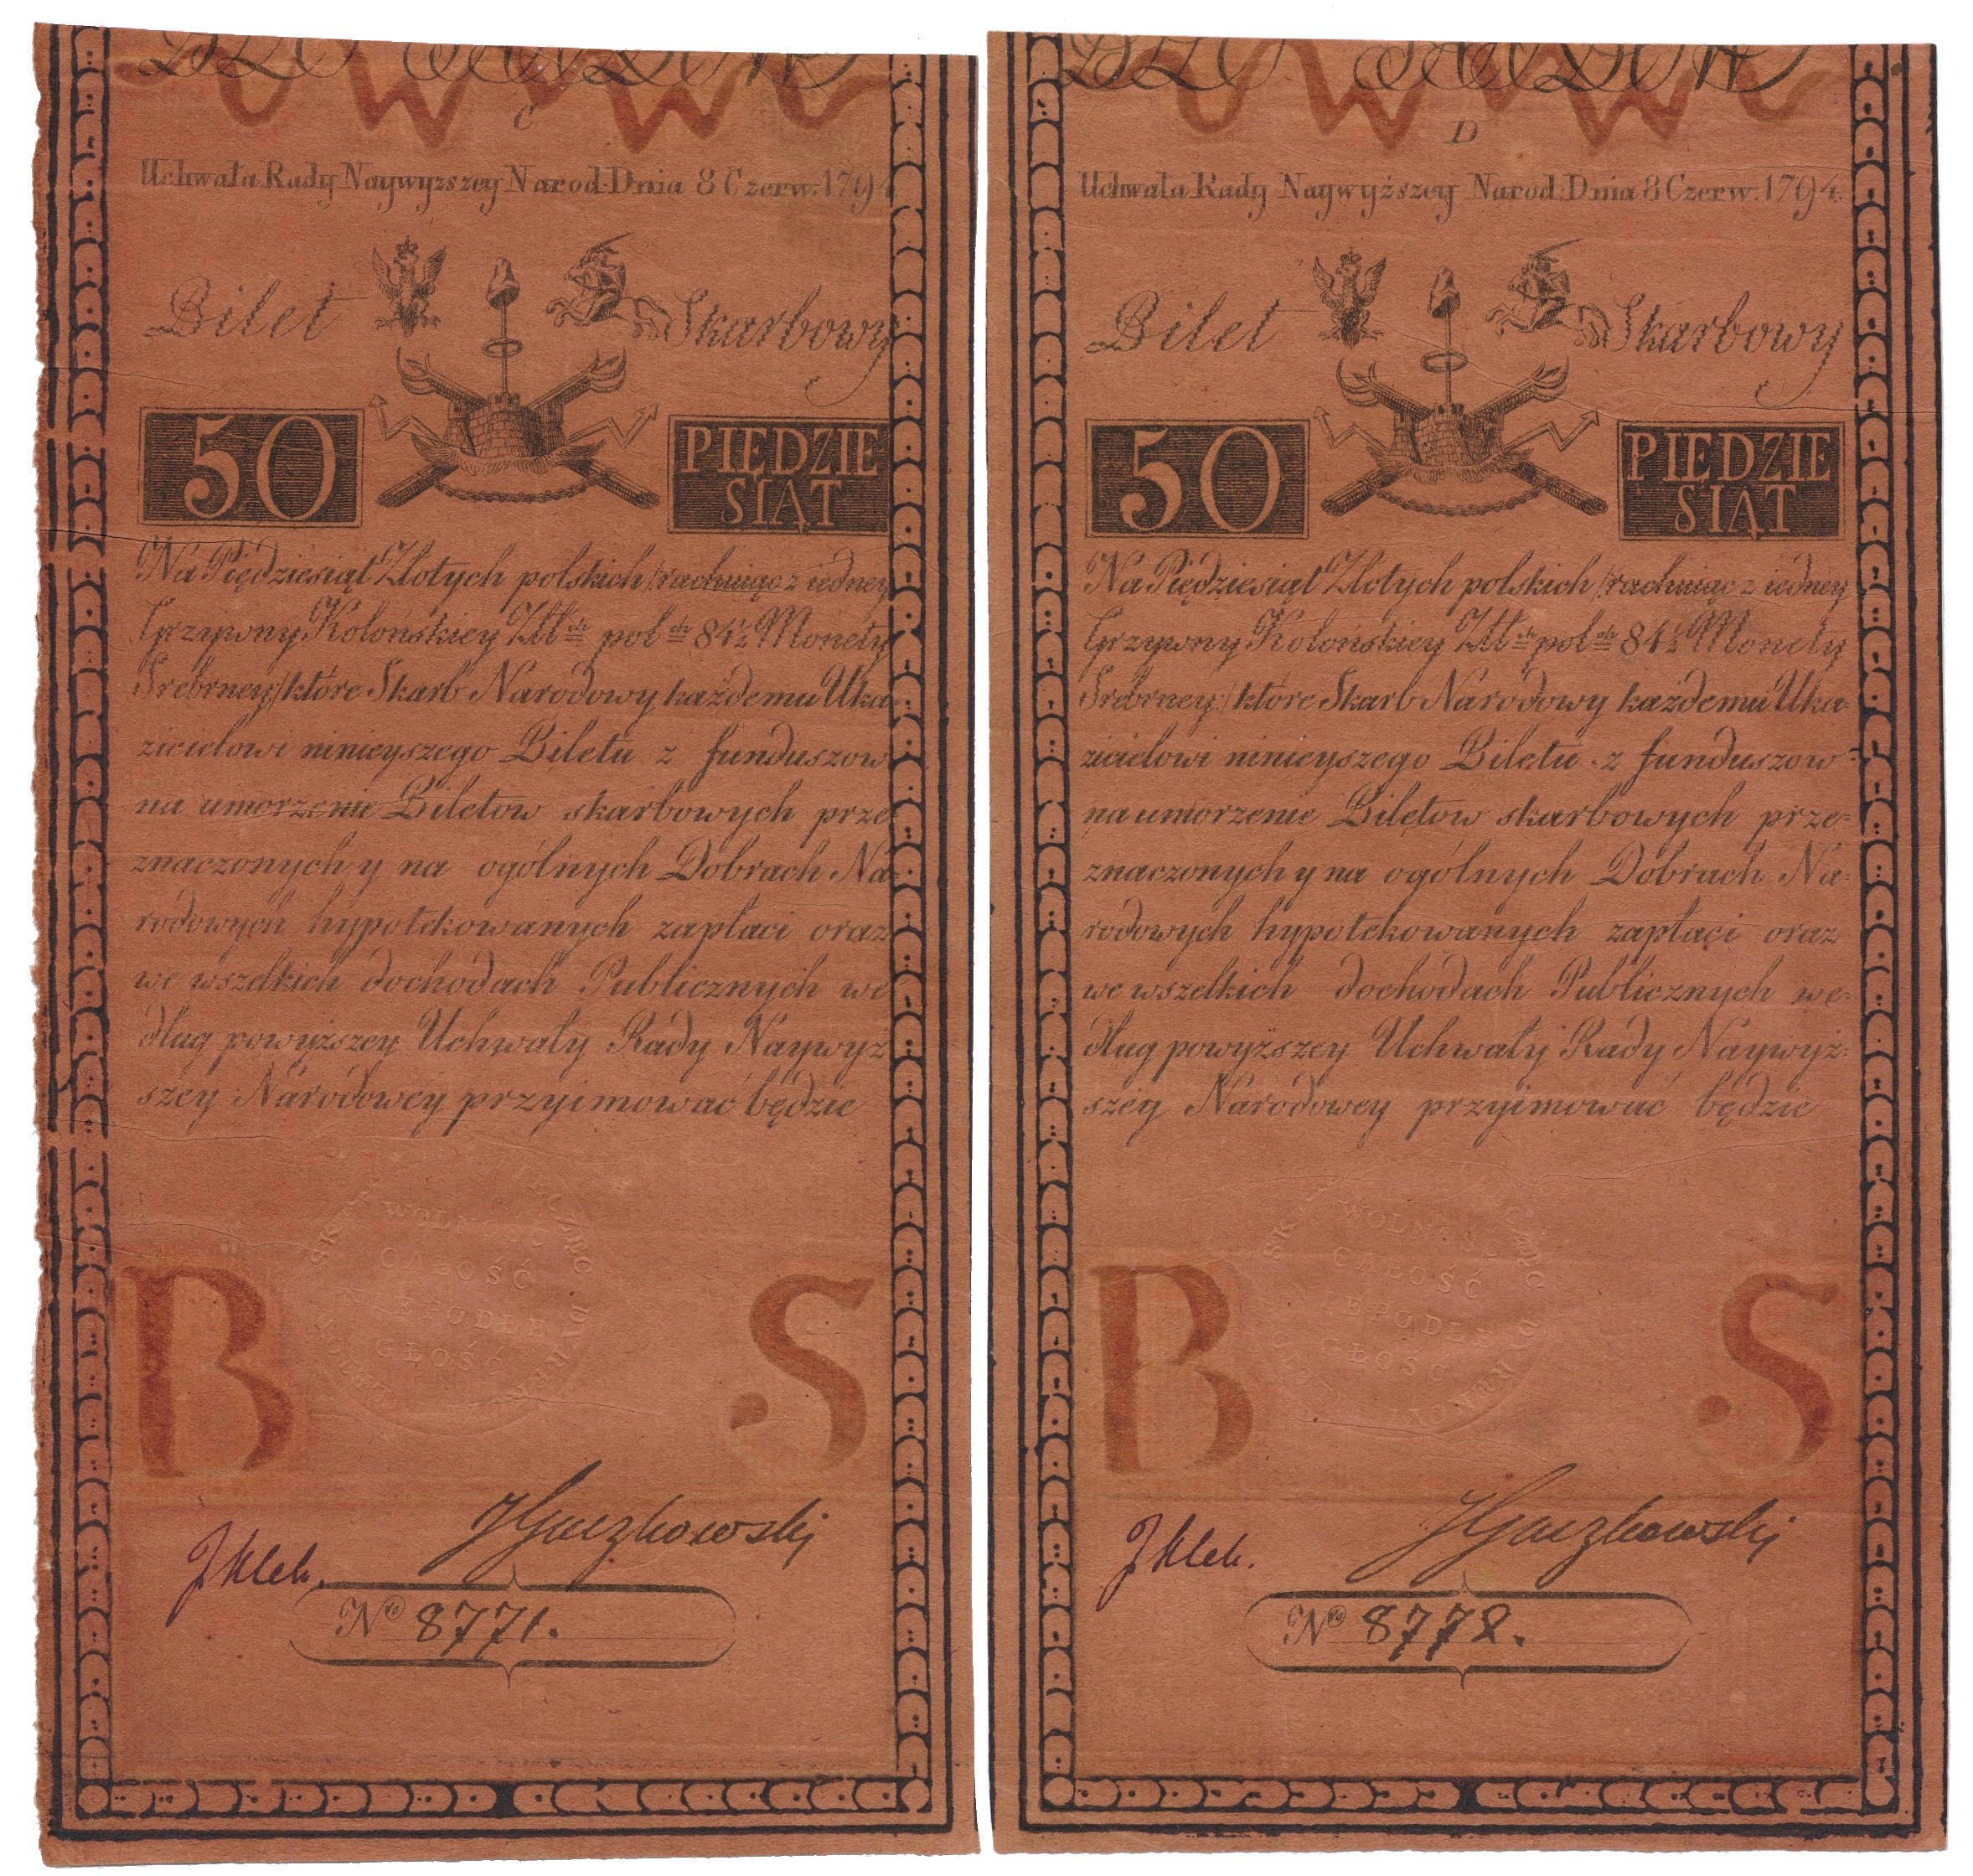 C
Uchwała Rady Naywyzszey Narod. Dnia 8 Czerw. 1794
Bilet Skarbowy
50 PIĘDZIE
SIĄT
Na Piędziesiąt Złotych polskich /rachuiąc z iedney
Grzywny Kolońskiey Złł ch pol ch 84½ Monety
Srebrney/ które Skarb Narodowy każdemu Uka-
zicielowi ninieyszego Biletu z funduszow
na umorzenie Biletow skarbowych prze
znaczonych y na ogólnych Dobrach Na
rodowych hypotekowanych zapłaci oraz
we wszelkich dochodach Publicznych we
dług powyższey Uchwały Rady Naywyż
szey Narodowey przyimować będzie
WOLNOŚĆ
CAŁOŚĆ
NIEPODLE
GŁOŚĆ
B S
No 8771.
D
Uchwała Rady Naywyższey Narod. Dnia 8 Czerw. 1794.
Bilet Skarbowy
50 PIĘDZIE
SIĄT
Na Piędziesiąt Złotych polskich /rachuiąc z iedney
Grzywny Kolońskiey Złł ch pol ch 84½ Monety
Srebrney/ które Skarb Narodowy każdemu Uka=
zicielowi ninieyszego Biletu z funduszow
na umorzenie Biletow skarbowych prze=
znaczonych y na ogólnych Dobrach Na=
rodowych hypotekowanych zapłaci oraz
we wszelkich dochodach Publicznych we=
dług powyższey Uchwały Rady Naywyż=
szey Narodowey przyimować będzie
WOLNOŚĆ
CAŁOŚĆ
NIEPODLE
GŁOŚĆ
B S
No 8778.